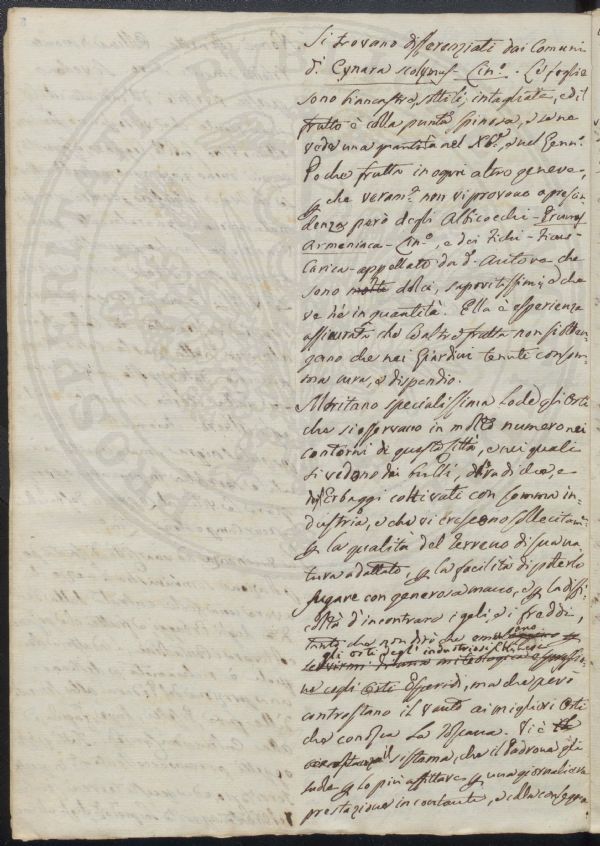 Si trovano differenziati dai Comuni
d.i Cynara scolymus Lin.o. Le foglie
sono biancastre, sottili, intagliate, ed il
frutto è colla punta spinosa, e se ne
vede una quantità nel Xb.e, e nel Genn.o
Poche frutta in ogni altro genere,
che veram.e non vi provono a preson
denza però degli Albicocchi - Prunus
Armeniaca - Lin.o, e dei Fichi - Ficus
Carica - appellato da d.o Autore che
sono molto dolci, saporitissimi, e che
ve n'è in quantità. Ella è esperienza
assicurata che le altre frutta non si otten
gono che nei Giardini tenuti con som
ma cura, e dispendio.
Meritano specialissima Lode gli Orti
che si osservano in molto numero nei
contorni di questa Città, e nei quali
si vedono dei frutti, di radiche, e
Erbaggi coltivati con somma in
dustria, e che vi crescono sollecitam.e
la qualità del terreno di sua na
tura adattato, la facilità di poterlo
fugare con generosa mano, e la diffi
coltà d'incontrare i geli, e i freddi,
tanto che non dirò che
gli orti degli industriosi
servirmi di una mitologica espressio
ne cogli Orti Esperidi, ma che però
contrastano il vanto ai migliori Orti
che conosca La Toscana. Vi è
il sistema, che il Padrone gli
più affittare una giornaliera
prestazione in contante, e colla consegna